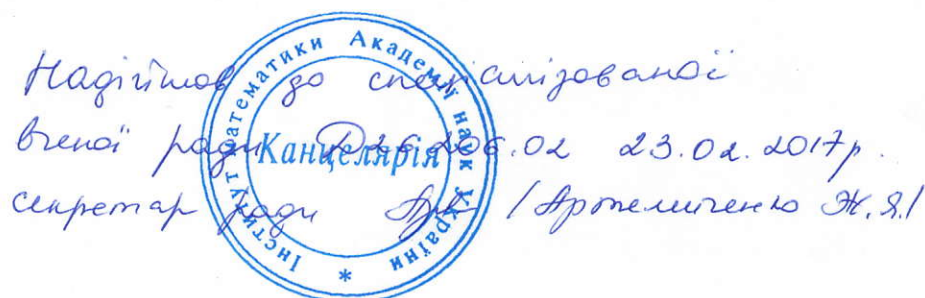 Надійшов до спеціалізованої
вченої ради Д 26.206.02 23.02.2017р.
секретар ради / Ж.Я./
Інститут математики Академії наук України *
Канцелярія